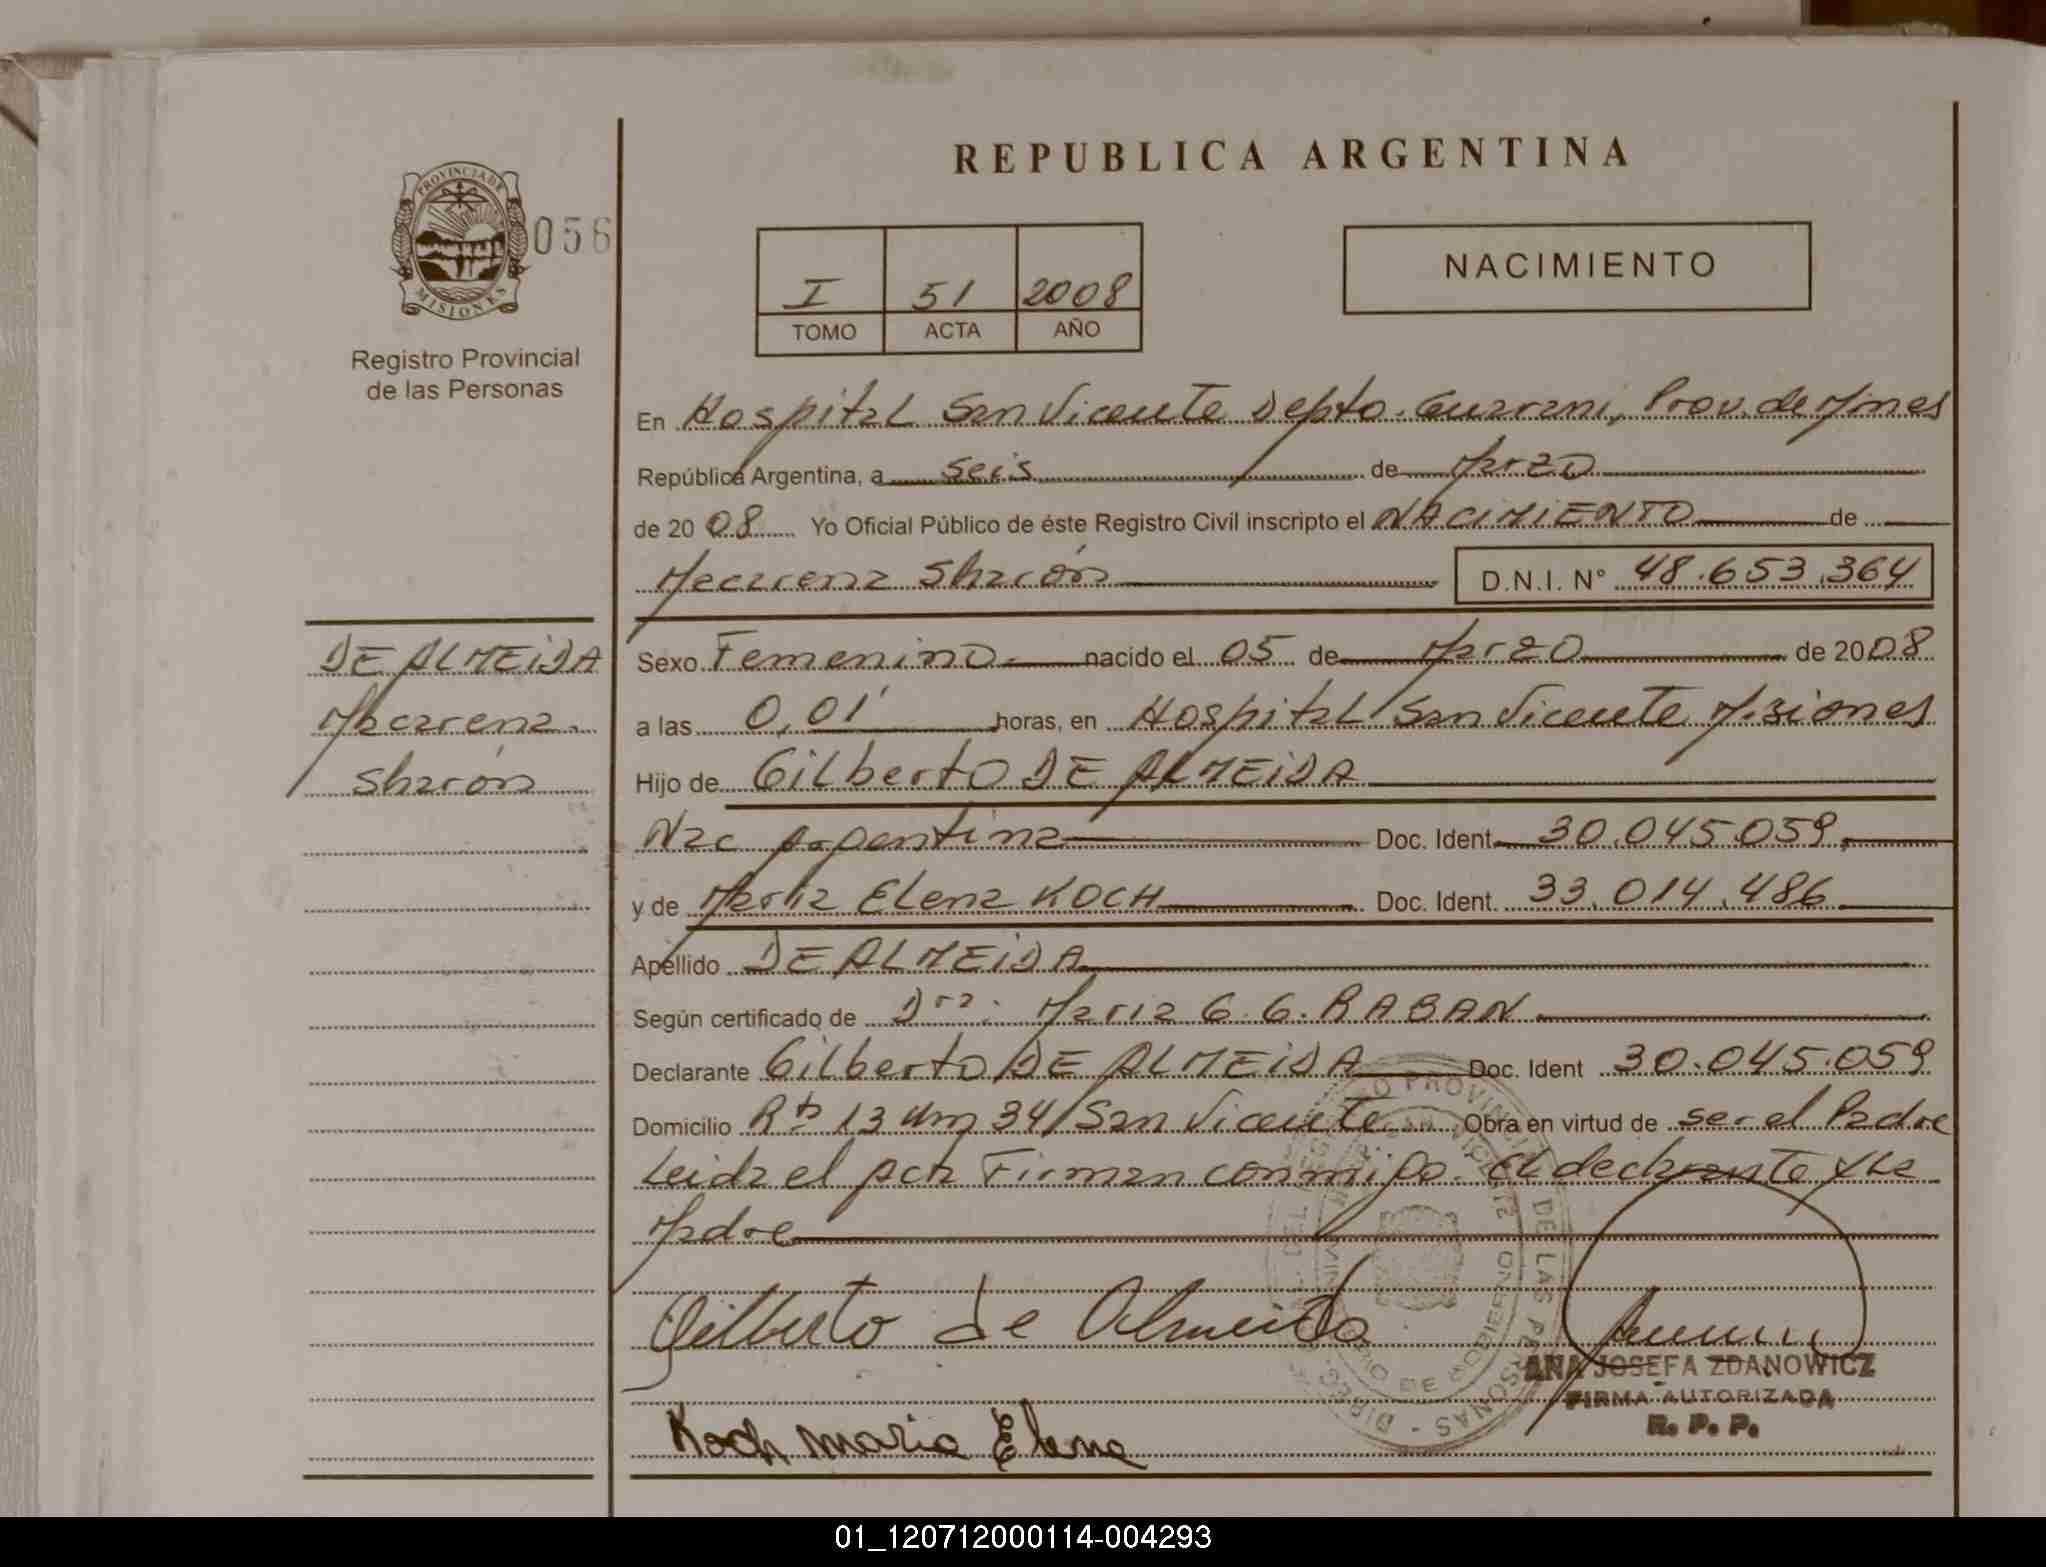 REPUBLICA ARGENTINA
PROVINCIA DE
MISIONES
056
Registro Provincial
de las Personas
I 51 2008
TOMO ACTA AÑO
NACIMIENTO
En Hospital San Vicente Depto. Guarani, Prov. de Mnes
República Argentina, a seis de Marzo
de 2008 Yo Oficial Público de éste Registro Civil inscripto el NACIMIENTO de
Macarena Sharón D.N.I. N° 48.653.364
DE ALMEIDA
Macarena
Sharón
Sexo Femenino nacido el 05 de Marzo de 2008
a las 0,01' horas, en Hospital San Vicente Misiones
Hijo de Gilberto DE ALMEIDA
Nac Argentina Doc. Ident 30.045.059,
y de María Elena KOCH Doc. Ident. 33.014.486
Apellido DE ALMEIDA
Según certificado de Dra. Maria G. G. RABAN
Declarante Gilberto DE ALMEIDA Doc. Ident 30.045.059
Domicilio Rta 13 Km 34/San Vicente Obra en virtud de ser el Padre
Leida el Acta Firman conmigo. El declarante y La
Madre
Gilberto de Almeida
Koch maria Elena
ANA JOSEFA ZDANOWICZ
FIRMA AUTORIZADA
R. P. P.
01_120712000114-004293